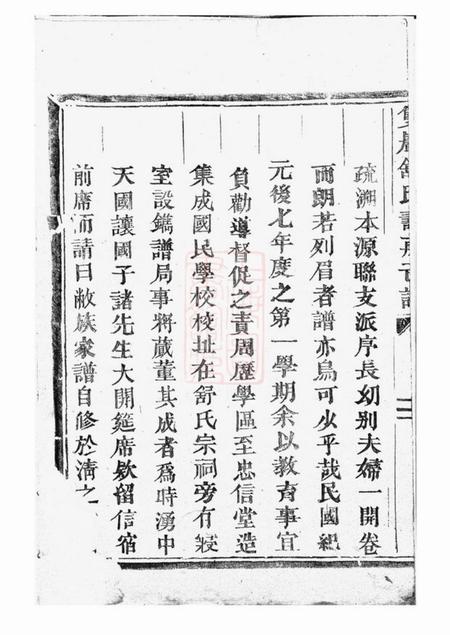 疏溯本源聯支派序長幼别夫婦一開卷
而朗若列眉者譜亦烏可少乎哉民國紀
元後七年度之第一學期余以教育事宜
負勸導督促之責周歷學區至忠信堂造
集成國民學校校址在舒氏宗祠旁有裝
室設鐫譜局事將蕆董其成者爲時湧中
天國讓國子諸先生大開筵席欵留信宿
前席而請曰敝族家譜自修於清之